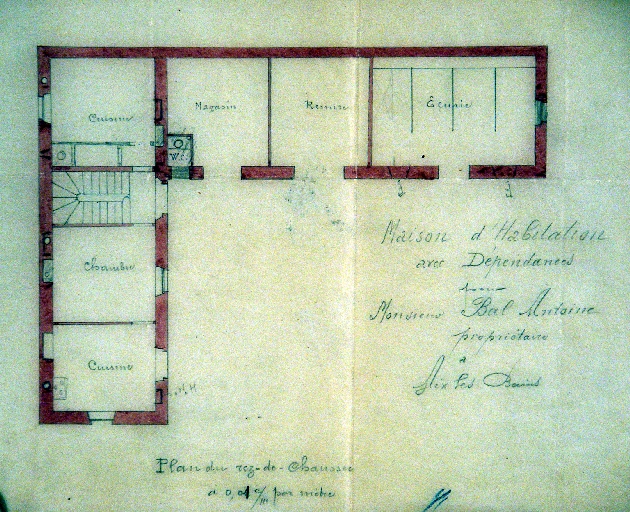 Cuisine
Magasin
Remise
Écurie
W.C.
Chambre
Cuisine
Maison d'Habitation
avec Dépendances
pour
Monsieur Bal Antoine
propriétaire
à
Aix les Bains
Plan du rez-de-Chaussée
à 0,01 c/m par mètre